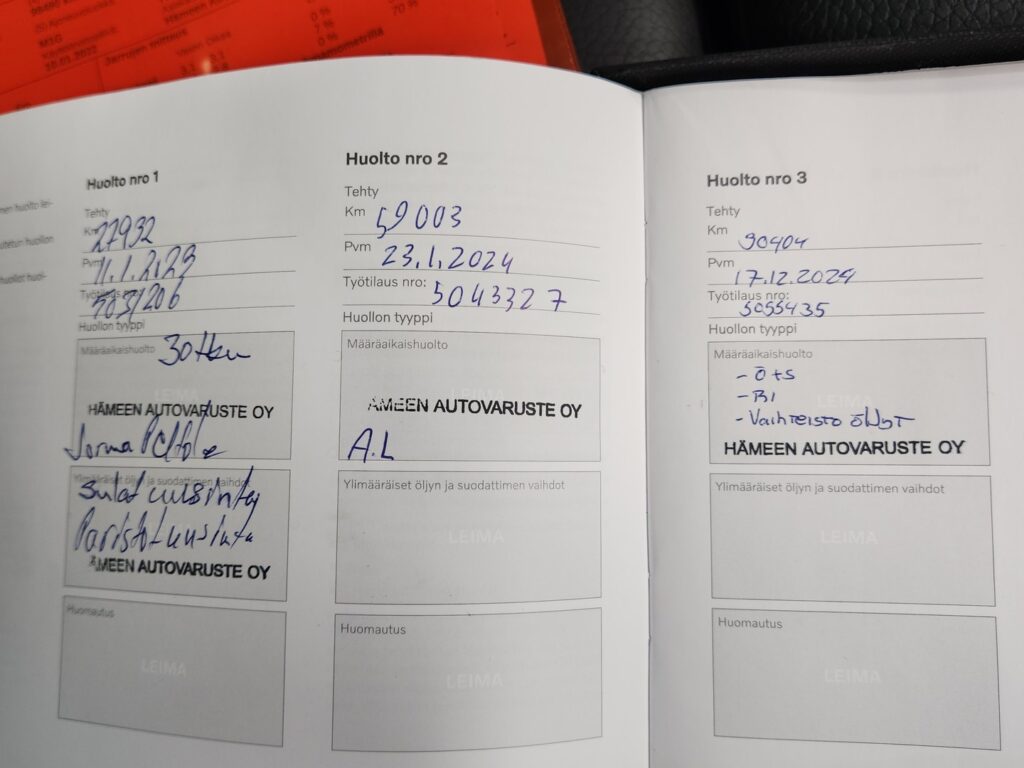 M1G
10.01.2022
Jarrujen mittaus
70 %
men huolto lei-
utetun huollon
huollot huol-
Huolto nro 1
Tehty
Km 27932
Pvm 11.1.2023
Huollon tyyppi
Määräaikaishuolto 30tkm
LEIMA
HÄMEEN AUTOVARUSTE OY
Jorma
Ylimääräiset öljyn ja suodattimen vaihdot
Paristot uusinta
ÄMEEN AUTOVARUSTE OY
Huomautus
LEIMA
Huolto nro 2
Tehty
Km 59003
Pvm 23.1.2024
Työtilaus nro: 5043327
Huollon tyyppi
Määräaikaishuolto
AMEEN AUTOVARUSTE OY
A.L
Ylimääräiset öljyn ja suodattimen vaihdot
LEIMA
Huomautus
LEIMA
Huolto nro 3
Tehty
Km 90404
Pvm 17.12.2024
Työtilaus nro: 5055435
Huollon tyyppi
Määräaikaishuolto
- Ö+S
- Vaihteisto öljyt
HÄMEEN AUTOVARUSTE OY
Ylimääräiset öljyn ja suodattimen vaihdot
LEIMA
Huomautus
LEIMA